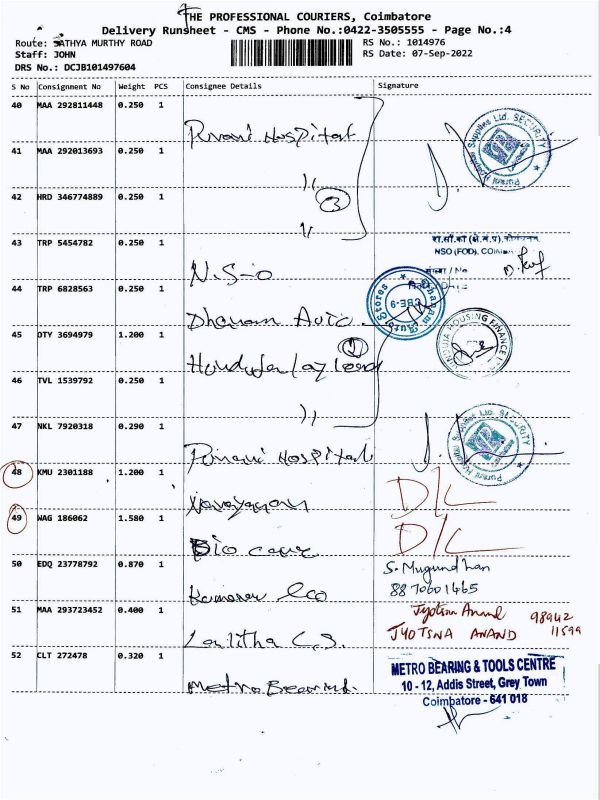 THE PROFESSIONAL COURIERS, Coimbatore
Delivery Runsheet - CMS - Phone No.:0422-3505555 - Page No.:4
Route: SATHYA MURTHY ROAD
RS No.: 1014976
Staff: JOHN
RS Date: 07-Sep-2022
DRS No.: DCJB101497604
S No Consignment No Weight PCS Consignee Details Signature
40 MAA 292811448 0.250 1
Purani Hospital
41 MAA 292013693 0.250 1
42 HRD 346774889 0.250 1
3
43 TRP 5454782 0.250 1
NSO (FOD), COIMBA
N.S-O
44 TRP 6828563 0.250 1
Dhanam Auto
45 OTY 3694979 1.200 1
46 TVL 1539792 0.250 1
47 NKL 7920318 0.290 1
Purani Hospital
48 KMU 2301188 1.200 1
Narayanan
D/L
49 WAG 186062 1.580 1
Bio care
D/L
50 EDQ 23778792 0.870 1
S. Mugundhan
8870601465
51 MAA 293723452 0.400 1
Jyotsna Anand 98942
JYOTSNA ANAND 11599
Lalitha C.S.
52 CLT 272478 0.320 1
METRO BEARING & TOOLS CENTRE
10 - 12, Addis Street, Grey Town
Coimbatore - 641 018
Metro Bearing